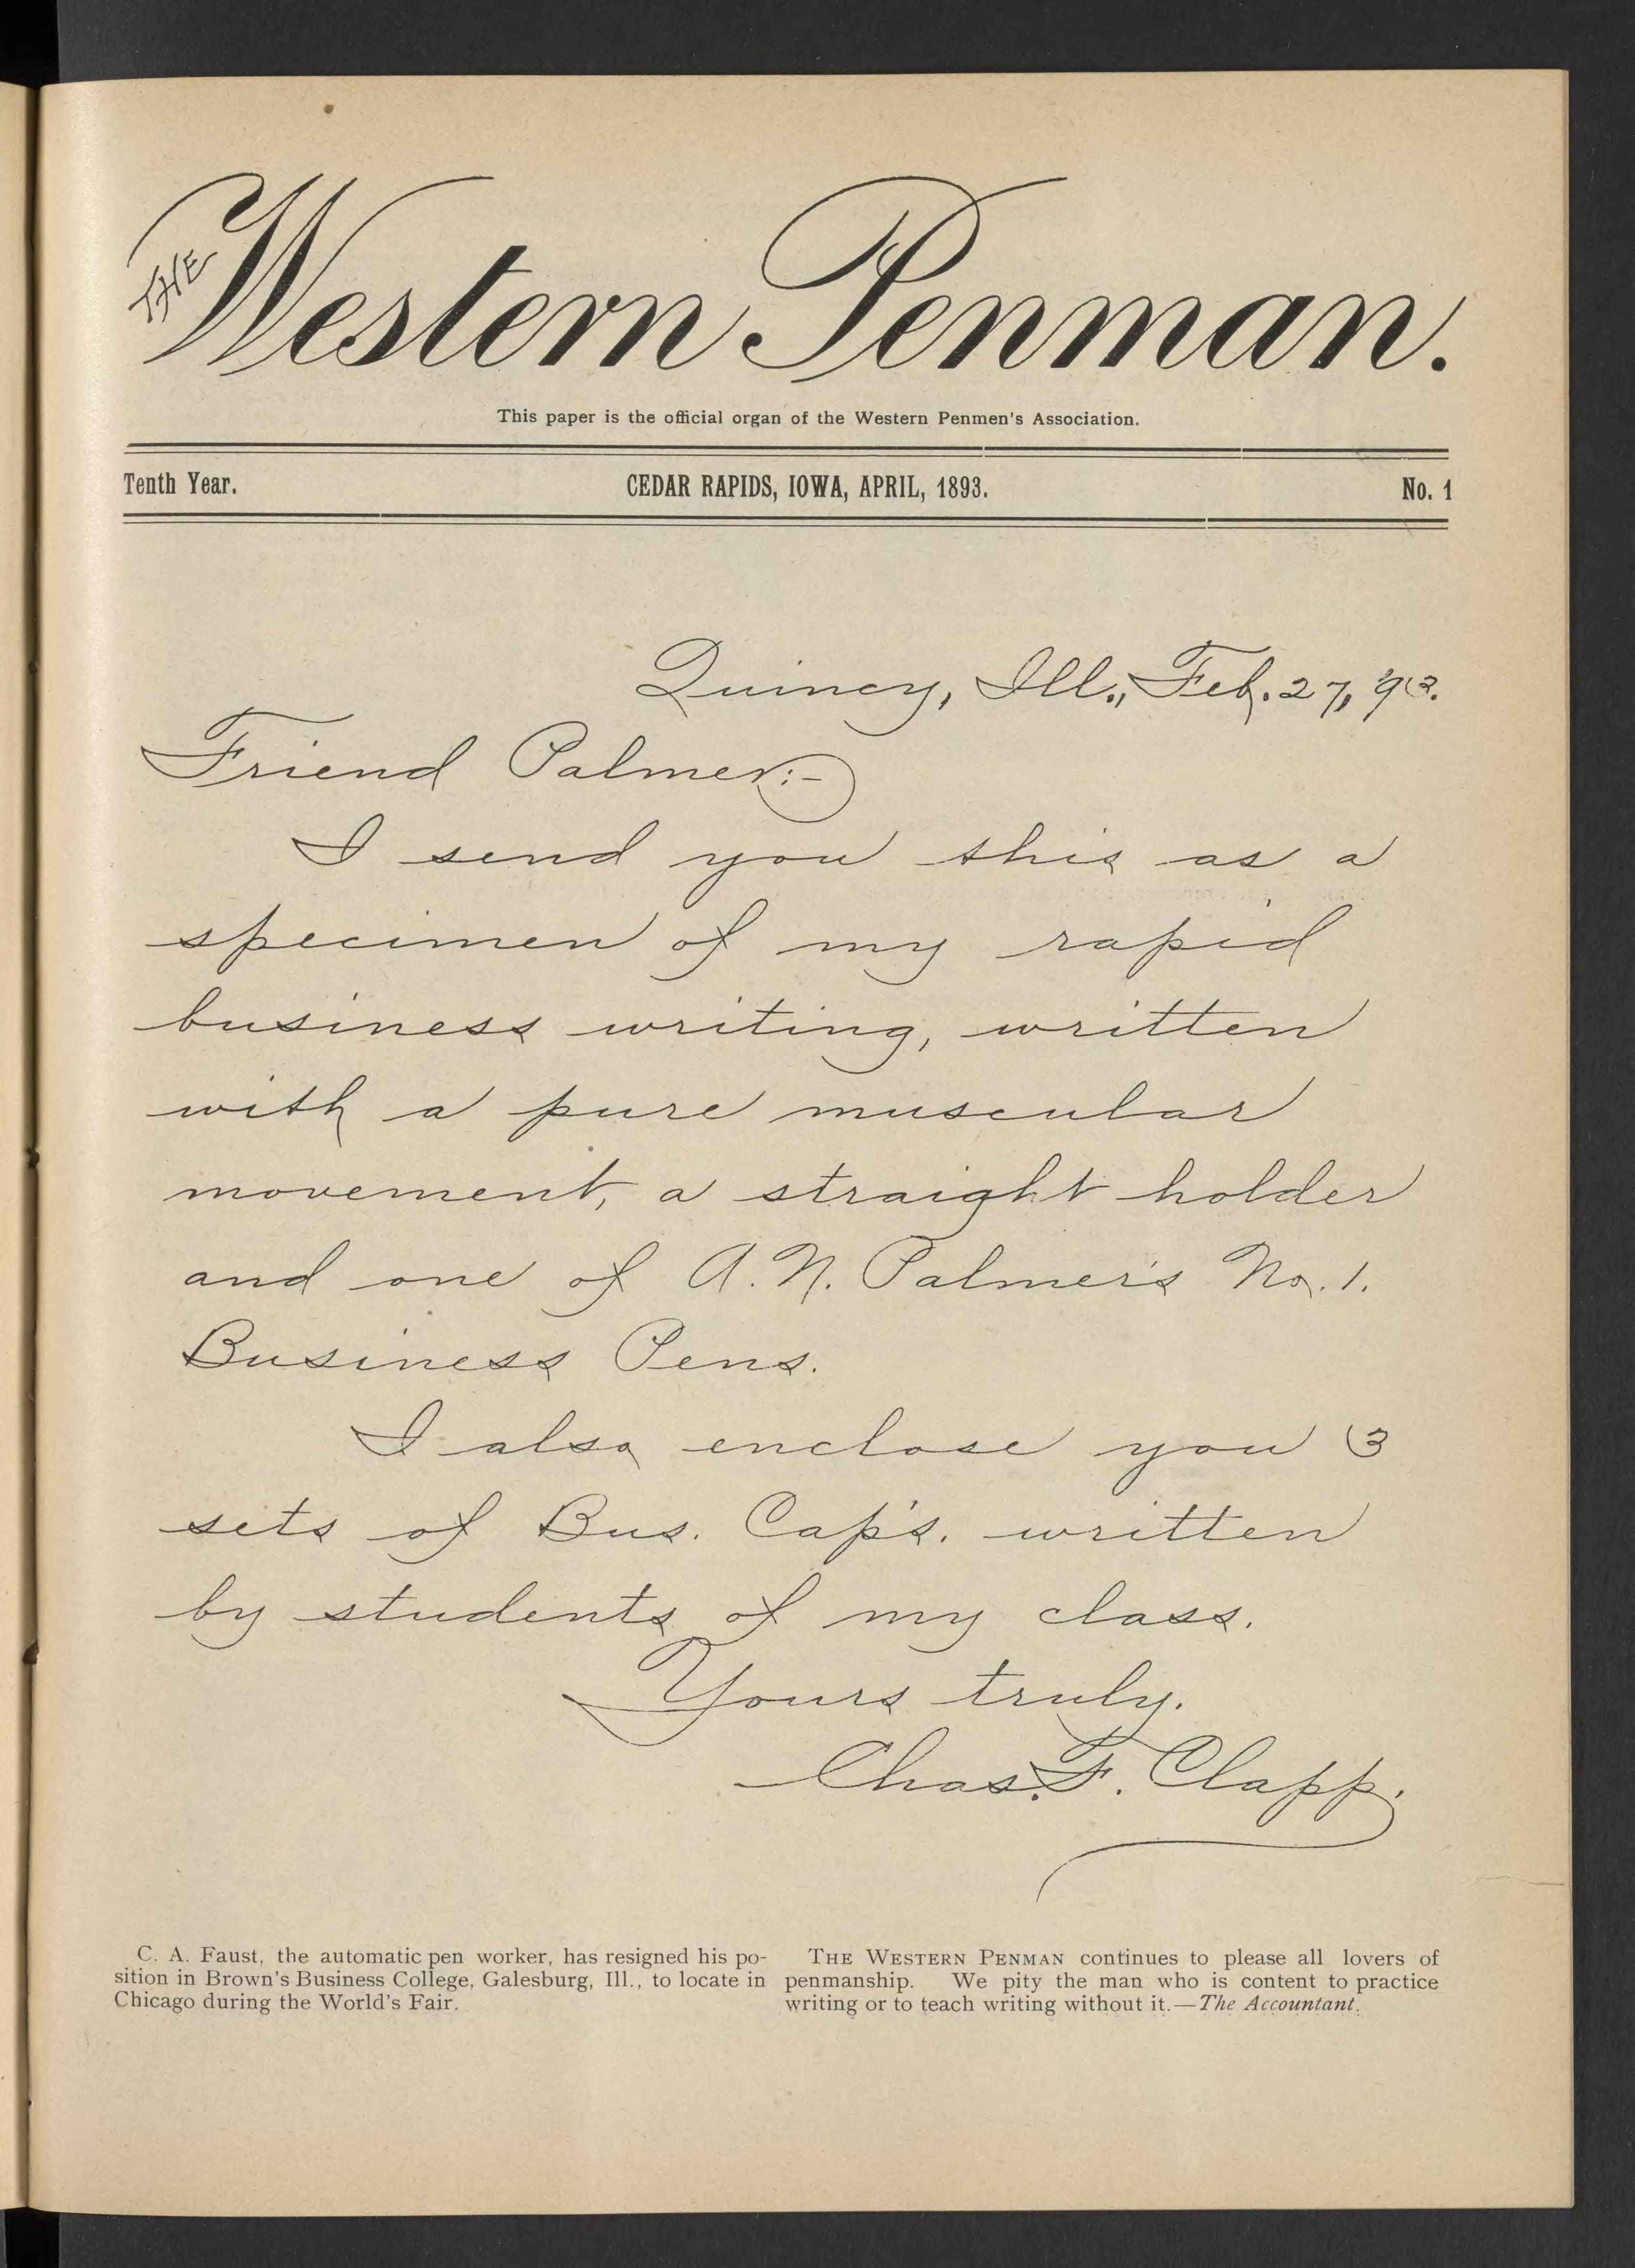 THE Western Penman.
This paper is the official organ of the Western Penmen's Association.
Tenth Year. CEDAR RAPIDS, IOWA, APRIL, 1893. No. 1
Quincy, Ill., Feb. 27, '93.
Friend Palmer:-
I send you this as a
specimen of my rapid
business writing, written
with a pure muscular
movement, a straight holder
and one of A. N. Palmer's No. 1.
Business Pens.
I also enclose you 3
sets of Bus. Cap's. written
by students of my class.
Yours truly.
Chas. F. Clapp.
C. A. Faust, the automatic pen worker, has resigned his po-
sition in Brown's Business College, Galesburg, Ill., to locate in
Chicago during the World's Fair.
THE WESTERN PENMAN continues to please all lovers of
penmanship. We pity the man who is content to practice
writing or to teach writing without it.—The Accountant.